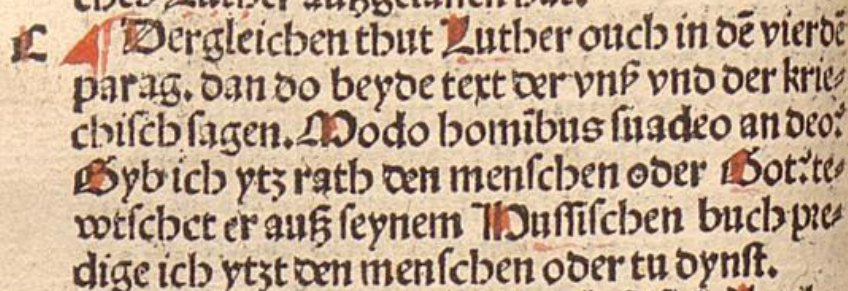 C Dergleichen thut Luther ouch in dẽ vierdẽ
parag. dan do beyde text der vnß vnd der krie⸗
chisch sagen. Modo homĩbus suadeo an deo?
Gyb ich ytz rath den menschen oder Got? te⸗
wtschet er auß seynem Hussischen buch pre⸗
dige ich ytzt den menschen oder tu dynst.